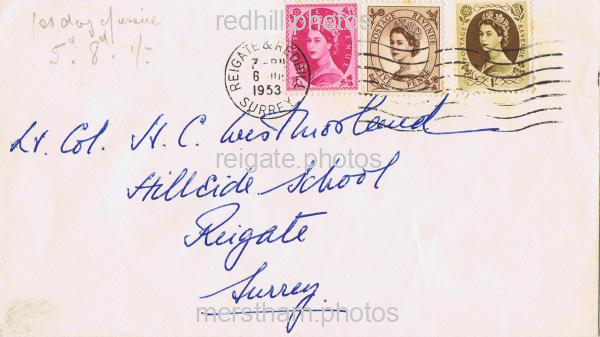 redhill.photos
1st day of issue
5d 8d 1/-
REIGATE & REDHILL
6 JUL
1953
SURREY
POSTAGE REVENUE
FIVE PENCE
Lt. Col. H. C. Westmorland
reigate.photos
Hillside School
Reigate
Surrey
merstham.photos